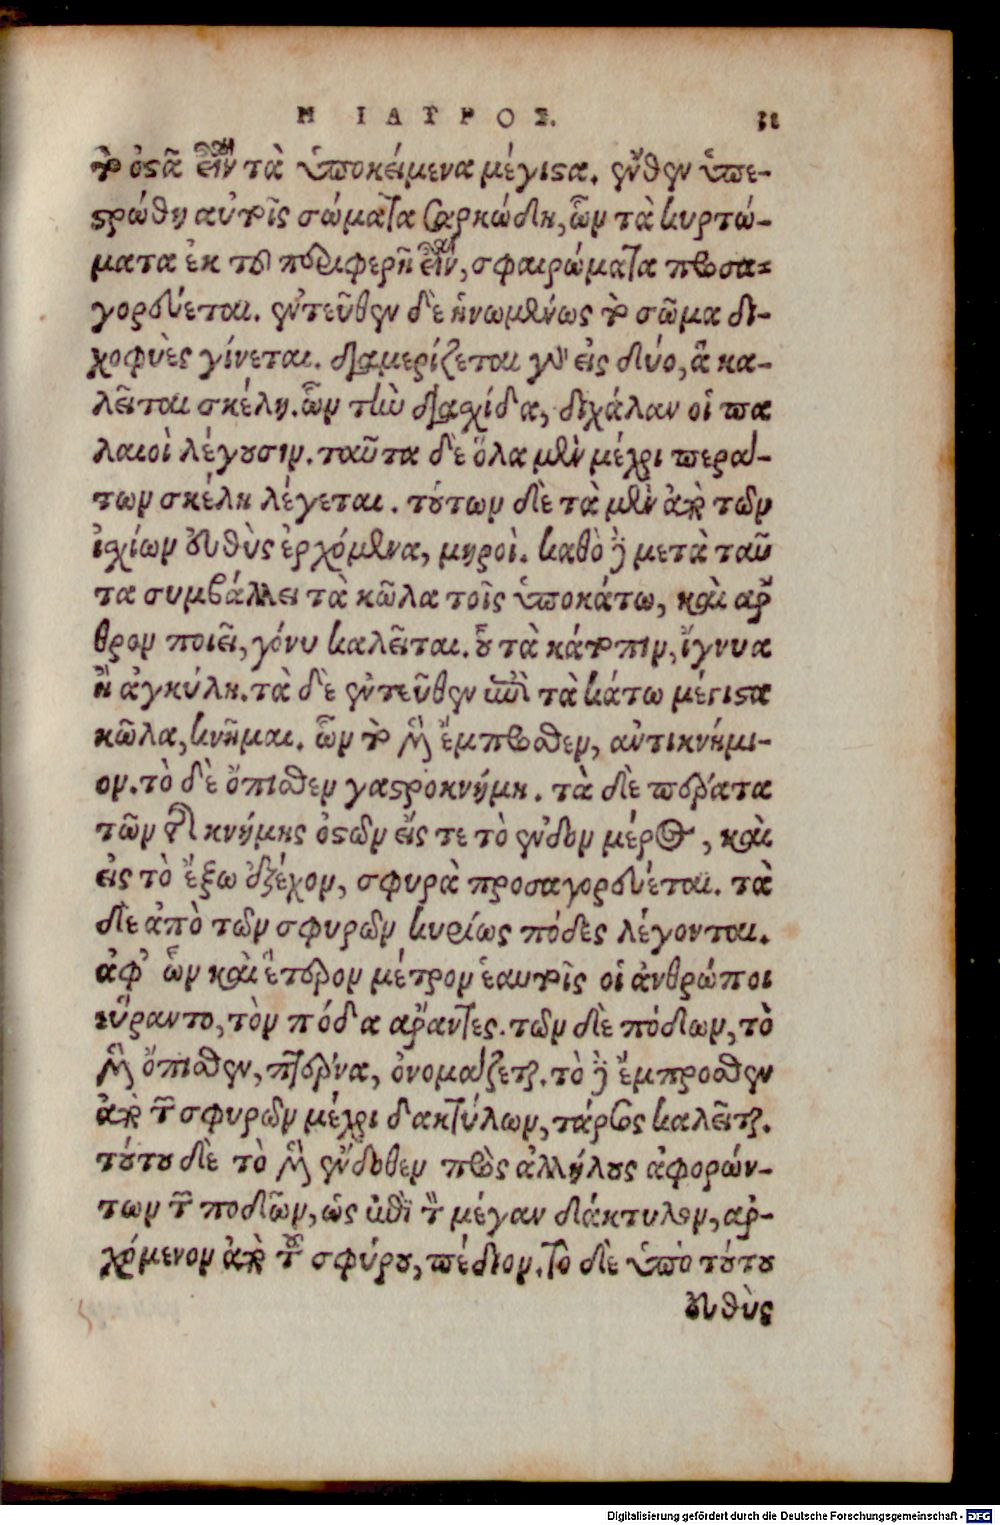 Η ΙΑΤΡΟΣ. 31
τὸ ὀστᾶ εἶναι τὰ ὑποκείμενα μέγιστα. ἔνθεν ὑπε-
στρώθη αὐτοῖς σώματα σαρκώδη, ὧν τὰ κυρτώ-
ματα ἐκ τοῦ περιφερῆ εἶναι, σφαιρώματα προσα-
γορεύεται. ἐντεῦθεν δὲ ἡνωμένως τὸ σῶμα δι-
χοφυὲς γίνεται. διαμερίζεται γὰρ εἰς δύο, ἃ κα-
λεῖται σκέλη. ὧν τὴν διασχίδα, διχάλαν οἱ πα
λαιοὶ λέγουσιν. ταῦτα δὲ ὅλα μὲν μέχρι περά-
των σκέλη λέγεται. τούτων δὲ τὰ μὲν ἀπὸ τῶν
ἰσχίων εὐθὺς ἐρχόμενα, μηροὶ. καθὸ δὲ μετὰ ταῦ
τα συμβάλλει τὰ κῶλα τοῖς ὑποκάτω, καὶ ἄρ
θρον ποιεῖ, γόνυ καλεῖται. οὗ τὰ κατόπιν, ἴγνυα
ἢ ἀγκύλη. τὰ δὲ ἐντεῦθεν ἐπὶ τὰ κάτω μέγιστα
κῶλα, κνῆμαι. ὧν τὸ μὲν ἔμπροσθεν, ἀντικνήμι-
ον. τὸ δὲ ὄπισθεν γαστροκνήμη. τὰ δὲ πέρατα
τῶν τῆς κνήμης ὀστῶν εἴς τε τὸ ἔνδον μέρος, καὶ
εἰς τὸ ἔξω ἐξέχον, σφυρὰ προσαγορεύεται. τὰ
δὲ ἀπὸ τῶν σφυρῶν κυρίως πόδες λέγονται.
ἀφ' ὧν καὶ ἕτερον μέτρον ἑαυτοῖς οἱ ἀνθρώποι
εὕραντο, τὸν πόδα ἄραντες. τῶν δὲ πόδων, τὸ
μὲν ὄπισθεν, πτέρνα, ὀνομάζεται. τὸ δὲ ἔμπροσθεν
ἀπὸ τῶν σφυρῶν μέχρι δακτύλων, τάρσος καλεῖται.
τούτου δὲ τὸ μὲν ἔνδοθεν πρὸς ἀλλήλους ἀφορών-
των τῶν ποδῶν, ὡς ἐπὶ τὸν μέγαν δάκτυλον, ἀρ-
χόμενον ἀπὸ τοῦ σφύρου, πέδιον. τὸ δὲ ὑπὸ τούτου
εὐθὺς
Digitalisierung gefördert durch die Deutsche Forschungsgemeinschaft - DFG